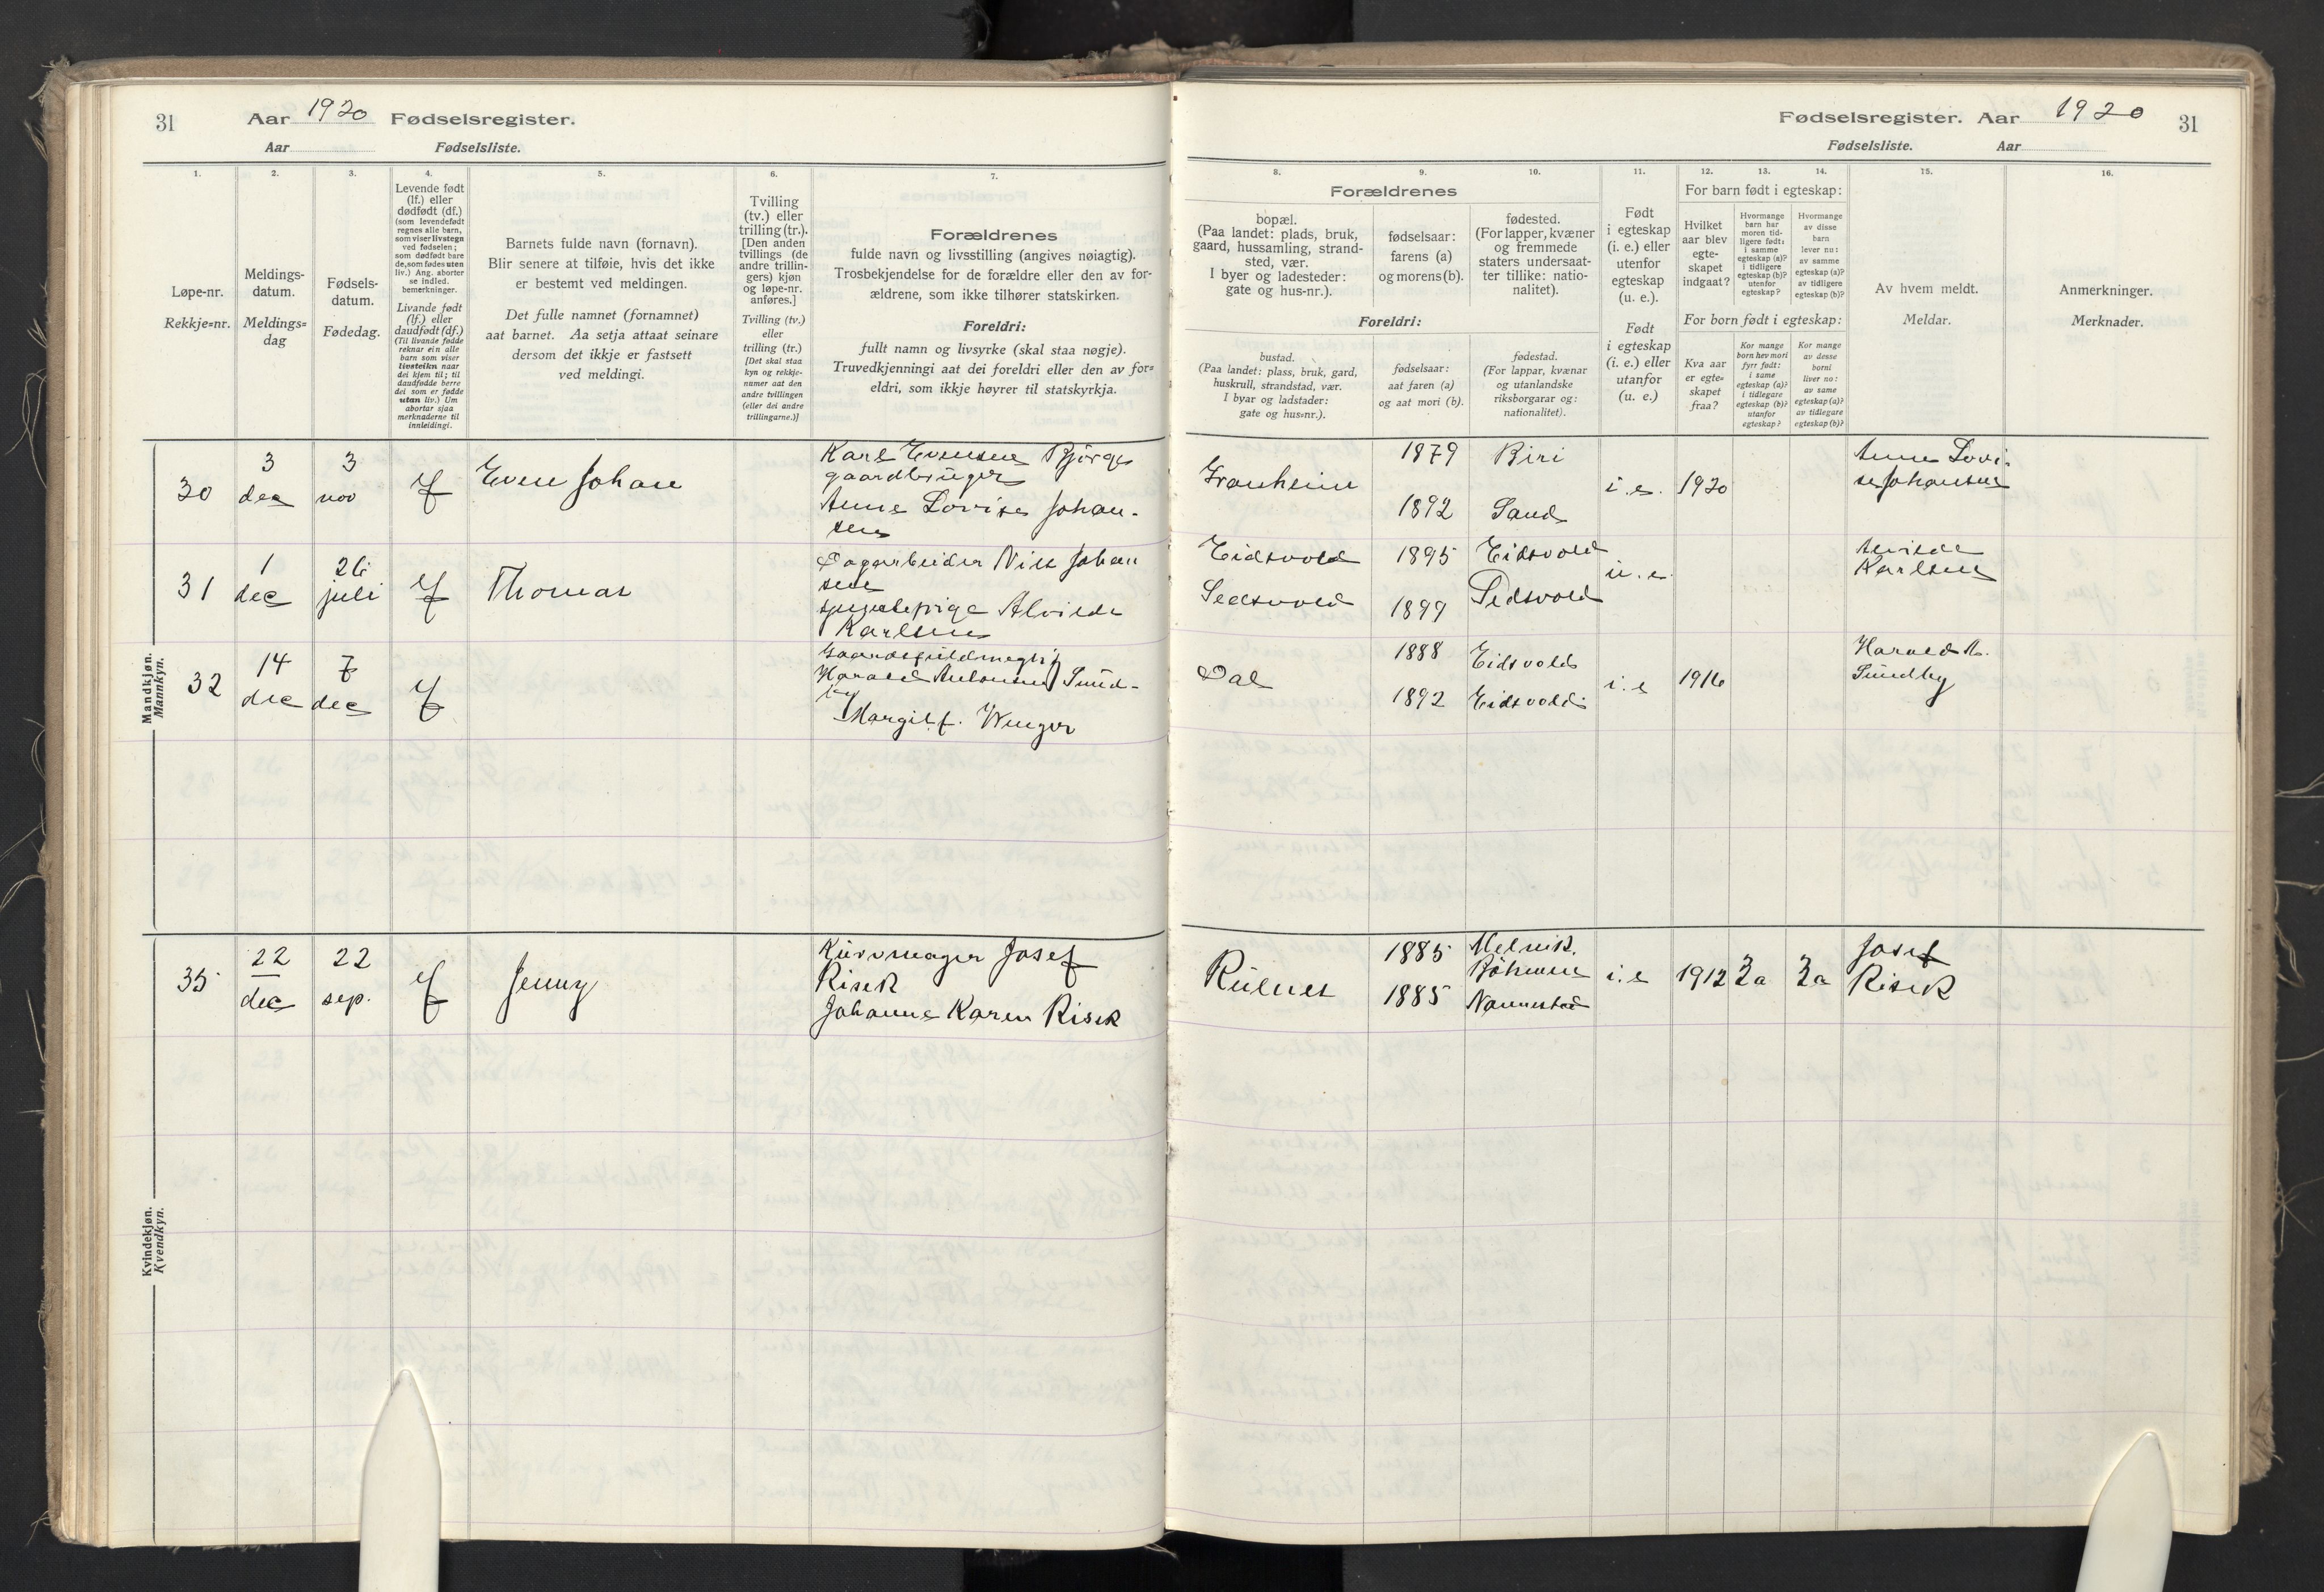 31
Aar 1920 Fødselsregister.
Aar Fødselsliste.
1.
2.
3.
4.
5.
6.
7.
Løpe-nr.
Rekkje=nr.
Meldings-
datum.
Meldings=
dag
Fødsels-
datum.
Fødedag.
Levende født
(lf.) eller
dødfødt (df.)
(som levendefødt
regnes alle barn,
som viser livstegn
ved fødselen;
som dødfødt bare
de, som fødes uten
liv.) Ang. aborter
se indled.
bemerkninger.
Livande født
(lf.) eller
daudfødt (df.)
(Til livande fødde
reknar ein alle
barn som viser
livsteikn naar
dei kjem til; til
daudfødde berre
dei som er fødde
utan liv.) Um
abortar sjaa
merknaderne til
innleidingi.
Barnets fulde navn (fornavn).
Blir senere at tilføie, hvis det ikke
er bestemt ved meldingen.
Det fulle namnet (fornamnet)
aat barnet. Aa setja attaat seinare
dersom det ikkje er fastsett
ved meldingi.
Tvilling
(tv.) eller
trilling (tr.).
[Den anden
tvillings (de
andre trillin-
gers) kjøn
og løpe-nr.
anføres.]
Tvilling (tv.)
eller
trilling (tr.)
[Det skal staa
kyn og rekkje-
numer aat den
andre tvillingen
(eller dei andre
trillingarne.)]
Forældrenes
fulde navn og livsstilling (angives nøiagtig).
Trosbekjendelse for de forældre eller den av for-
ældrene, som ikke tilhører statskirken.
Foreldri:
fullt namn og livsyrke (skal staa nøgje).
Truvedkjenningi aat dei foreldri eller den av for=
eldri, som ikkje høyrer til statskyrkja.
Mandkjøn.
Mannkyn.
30
3
dec
3
nov
lf
Even Johan
Karl Evensen Bjørge
gaardbruger
Anne Lovise Johan-
sen
31
1
dec
26
juli
lf
Thomas
Dagarbeider Nils Johan
sen
Alvilde
Karlsen
32
14
dec
7
dec
lf
Gaardsfuldmegtig
Harald Antonsen Sund-
by
Margit f. Wenger
Kvindekjøn.
Kvendkyn.
35
22
dec
22
sep.
lf
Jenny
Kurvmager Josef
Risek
Johanne Karen Risek
Fødselsregister. Aar 1920
31
Fødselsliste. Aar
8.
9.
10.
11.
12.
13.
14.
15.
16.
Forældrenes
bopæl.
(Paa landet: plads, bruk,
gaard, hussamling, strand-
sted, vær.
I byer og ladesteder:
gate og hus-nr.).
fødselsaar:
farens (a)
og morens (b).
fødested.
(For lapper, kvæner
og fremmede
staters undersaat-
ter tillike: natio-
nalitet).
Foreldri:
bustad.
(Paa landet: plass, bruk, gard,
huskrull, strandstad, vær.
I byar og ladstader:
gate og hus=nr.).
fødselsaar:
aat faren (a)
og aat mori (b).
fødestad.
(For lappar, kvænar
og utanlandske
riksborgarar og:
nationalitet).
Født
i egteskap
(i. e.) eller
utenfor
egteskap
(u. e.).
Født
i egteskap
(i. e.) eller
utanfor
(u. e.)
For barn født i egteskap:
Hvilket
aar blev
egte-
skapet
indgaat?
Hvormange
barn har
moren tid-
ligere født:
i samme
egteskap (a)?
i tidligere
egteskap (b)?
utenfor
egteskap?
Hvormange
av disse
barn
lever nu:
av samme
egteskap (a)?
av tidligere
egteskap (b)?
For born født i egteskap:
Kva aar
er egte=
skapet
fraa?
Kor mange
born hev mori
fyrr født:
i same
egteskap (a)?
i tidlegare
egteskap (b)?
utanfor
egteskap?
Kor mange
av desse
borni
liver no:
av same
egteskap (a)?
av tidlegare
egteskap (b)?
Av hvem meldt.
Meldar.
Anmerkninger.
Merknader.
Granheim
1879
Biri
1892
Sand
i.e.
1920
Anne Lovi-
se Johansen
Eidsvold
1895
Eidsvold
1899
Eidsvold
u.e.
Alvilde
Karlsen
Dal
1888
Eidsvold
1892
Eidsvold
i.e
1916
Harald A.
Sundby
1885
Melnik.
Böhmen
1885
Nannestad
i.e
1912
3a
3a
Josef
Risek